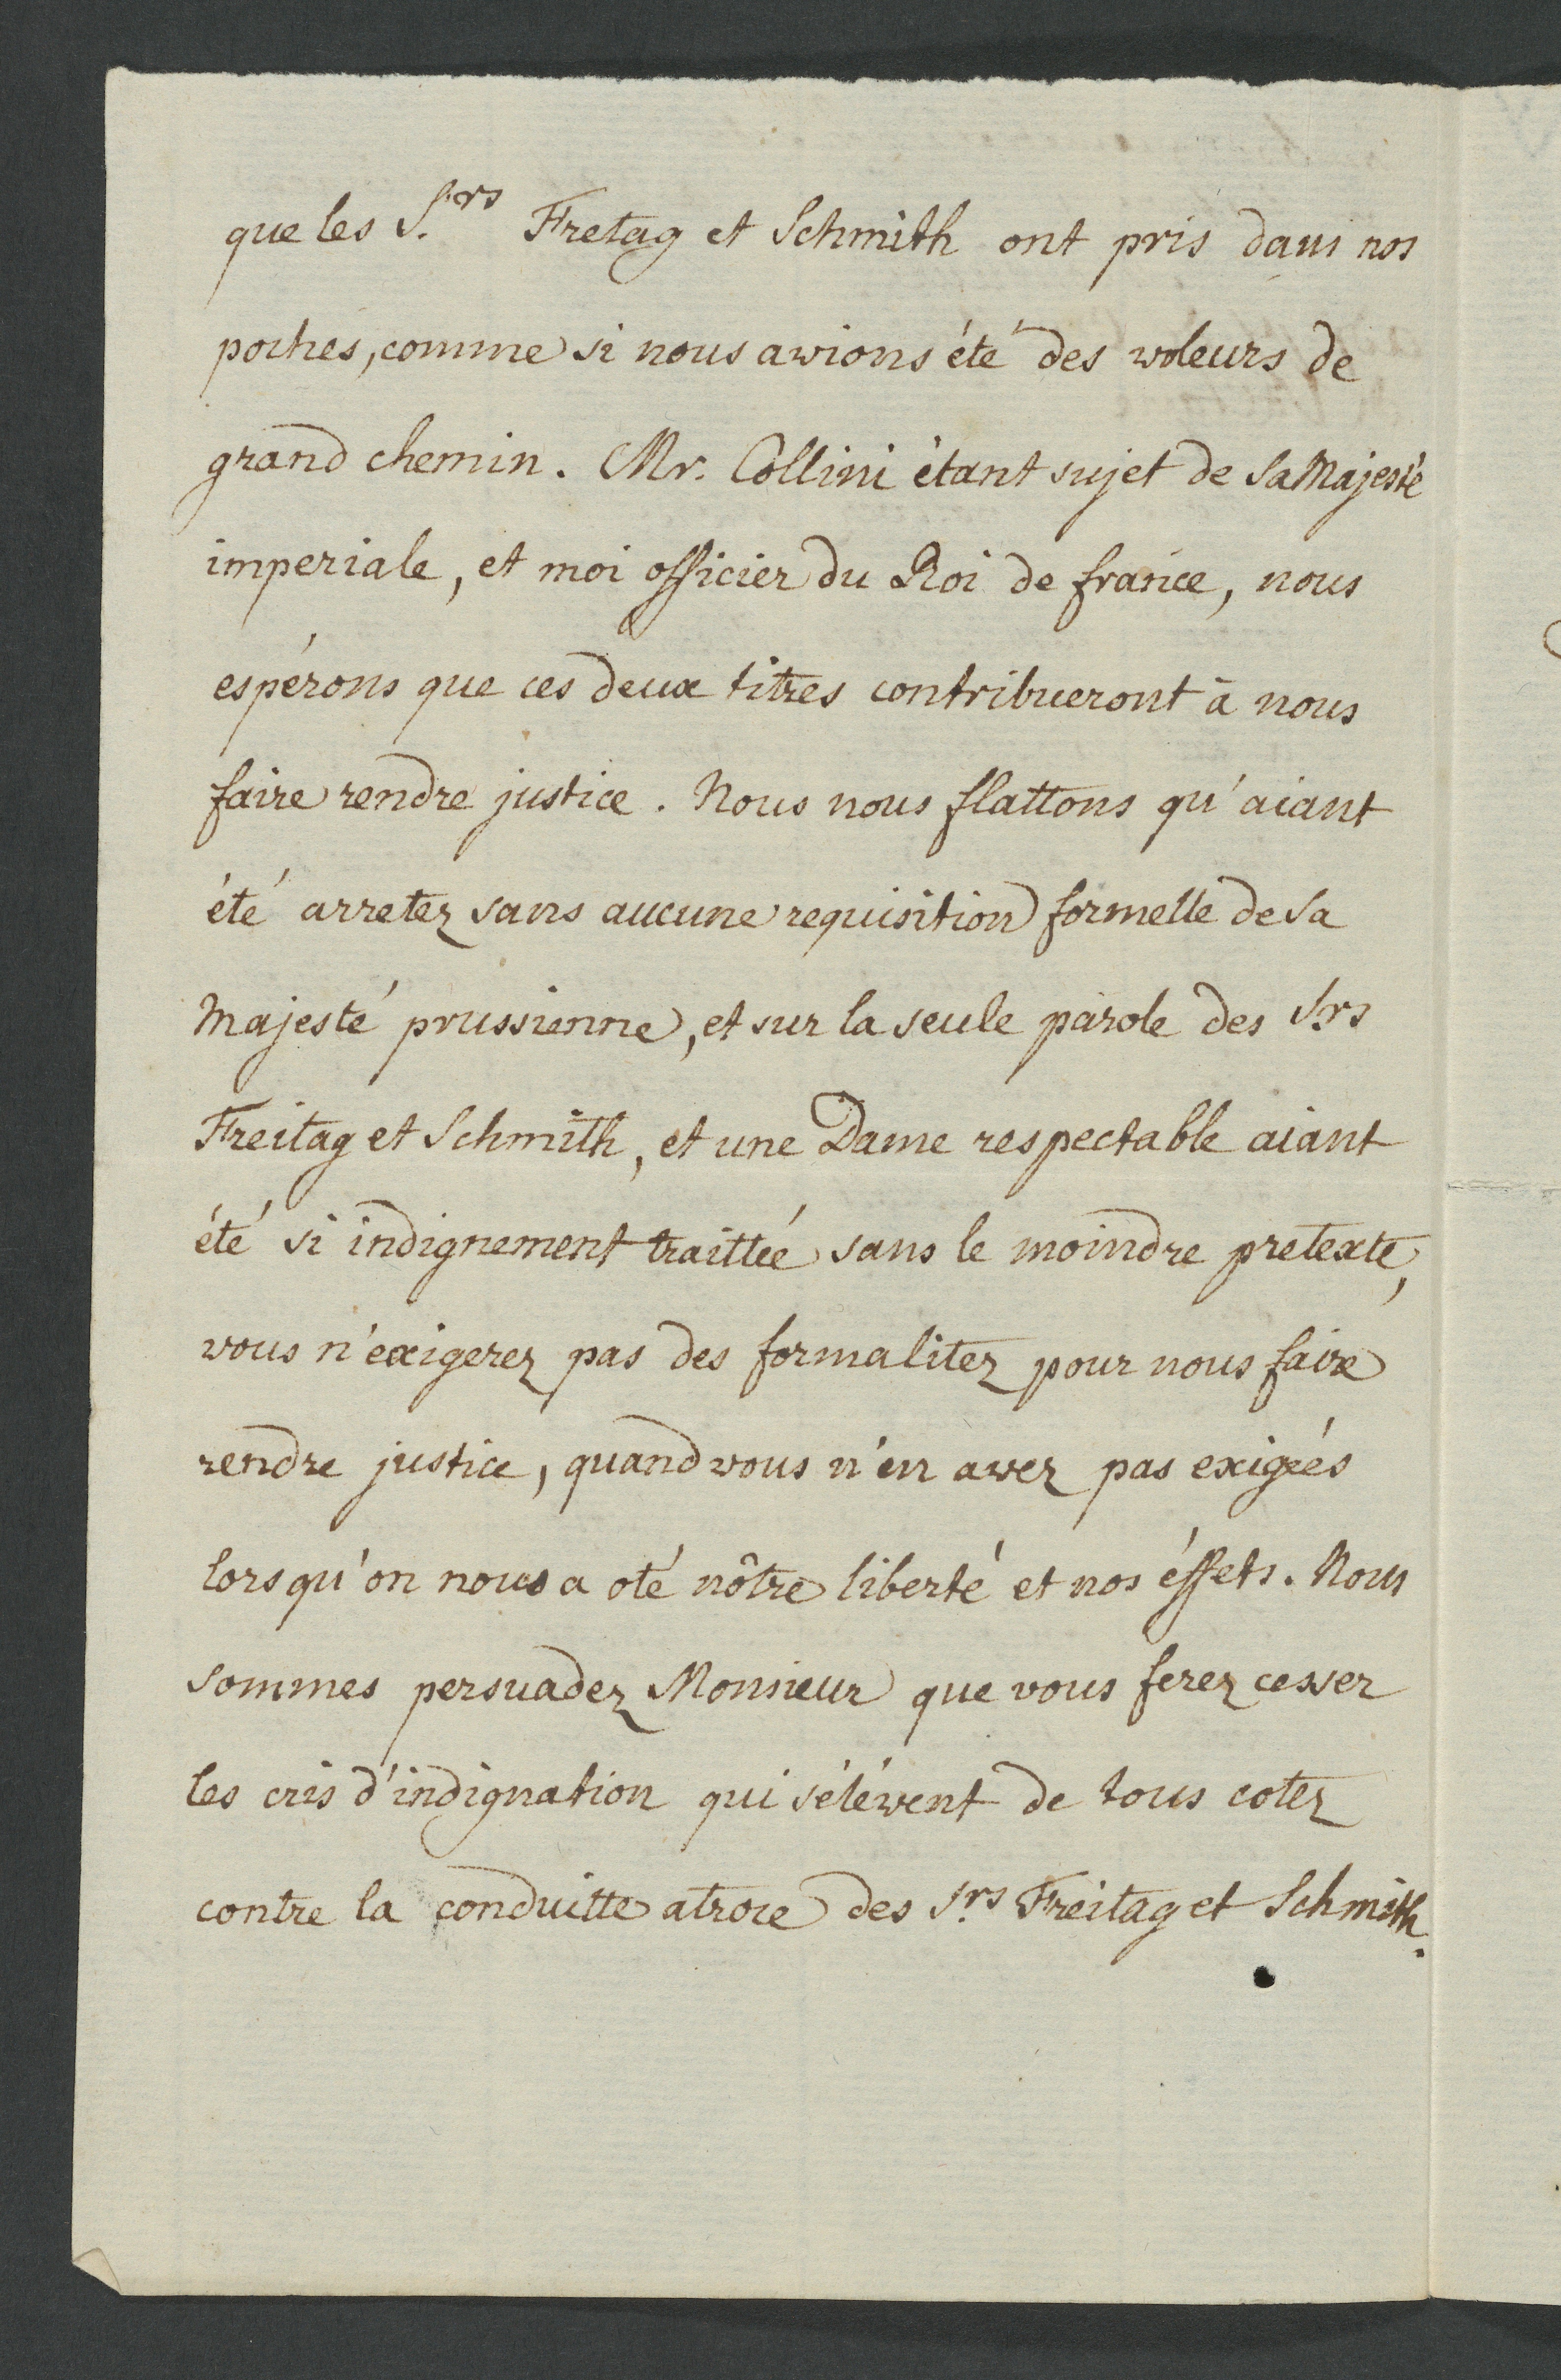 que les S.rs Fretag et Schmith ont pris dans nos
poches, comme si nous avions été des voleurs de
grand chemin. Mr. Collini étant sujet de Sa Majesté
imperiale, et moi officier du Roi de france, nous
espérons que ces deux titres contribueront à nous
faire rendre justice. Nous nous flattons qu'aiant
été arretez sans aucune requisition formelle de Sa
Majesté prussienne, et sur la seule parole des Srs
Freitag et Schmith, et une Dame respectable aiant
été si indignement traittée sans le moindre pretexte,
vous n'exigerez pas des formalitez pour nous faire
rendre justice, quand vous n'en avez pas exigées
lorsqu'on nous a oté nôtre liberté et nos éffets. Nous
sommes persuadez Monsieur que vous ferez cesser
les cris d'indignation qui s'élévent de tous cotez
contre la conduitte atroce des S.rs Freitag et Schmith.